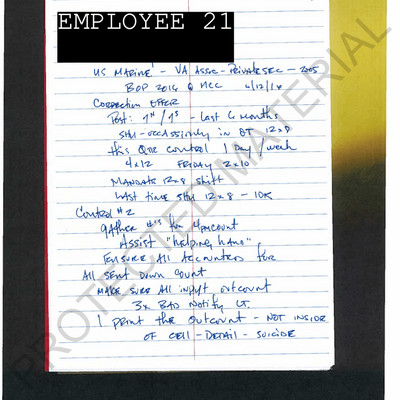 EMPLOYEE 21
US MARINE - VA ASSOC - PRIVATE SEC - 2005
BOP 2016 @ MCC
CORRECTION OFFICER
POST: - LAST 6 MONTHS
SHU - OCCASSIONLY IN OT 12x8
this QTR CONTROL 1 DAY week
4x12 FRIDAY 2x10
MANDATE 12x8 shift
LAST TIME SHU 12x8 - 10K
CONTROL #2
GATHER #'s for 4pm COUNT
ASSIST "helping hand"
ENSURE ALL ACCOUNTED for
All SENT DOWN COUNT
MAKE SURE All INPUT OUTCOUNT
3x BAD NOTIFY LT.
I PRINT the OUTCOUNT - NOT INSIDE
OF CELL - DETAIL - SUICIDE
PROTECTED MATERIAL